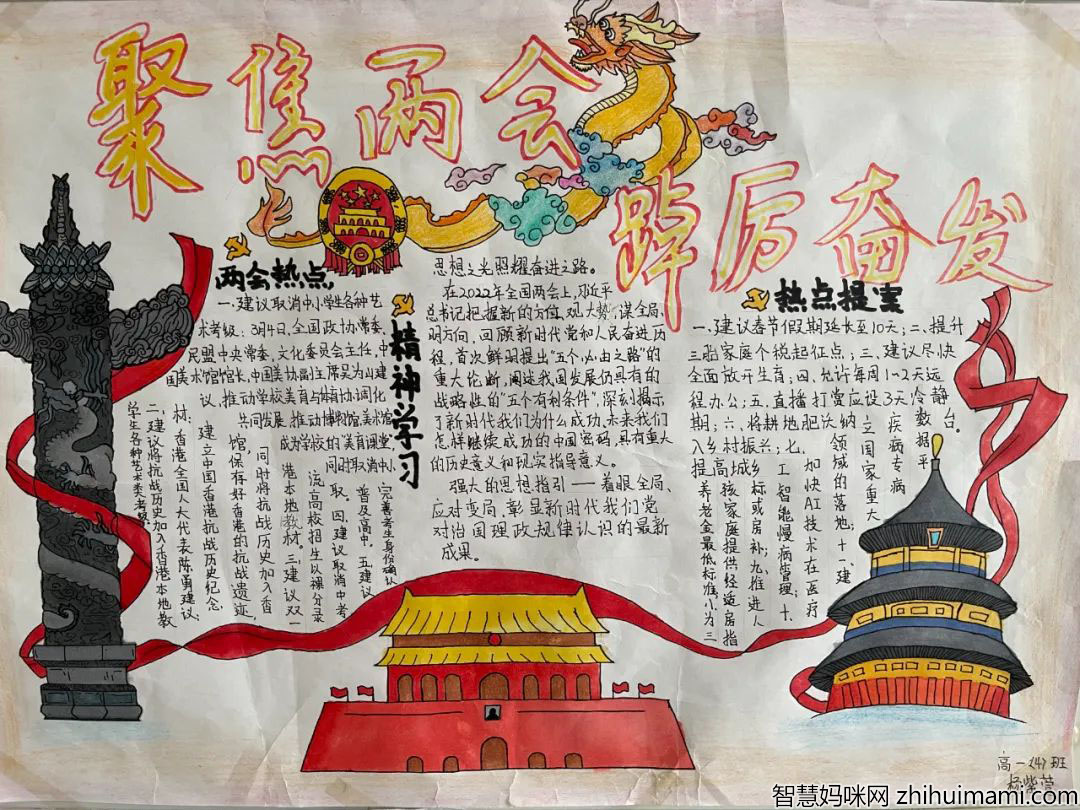 聚焦两会
踔厉奋发
两会热点
一.建议取消中小学生各种艺
术考级：3月4日,全国政协常委,
民盟中央常委,文化委员会主任,中
国美术馆馆长,中国美协副主席吴为山建
议,推动学校美育与体育协调化
共同发展,推动博物馆,美术馆
成为学校的"美育阅堂",
同时取消中小
学生各种艺术类考级。
二、建议将抗战历史加入香港本地教
材：香港全国人大代表陈勇建议,
建立中国香港抗战历史纪念
馆,保存好香港的抗战遗迹,
同时将抗战历史加入香
港本地教材。三、建议双一
流高校招生以裸分录
取。四.建议取消中考
普及高中。五.建议
完善考生身份确认
精神学习
思想之光照耀奋进之路。
在2022年全国两会上,习近平
总书记把握新的方位,观大势,谋全局,
明方向,回顾新时代党和人民奋进历
程,首次鲜明提出"五个必由之路"的
重大论断,阐述我国发展仍具有的
战略性的"五个有利条件",深刻揭示
了新时代我们为什么成功,未来我们
怎样继续成功的中国密码,具有重大
的历史意义和现实指导意义。
强大的思想指引——着眼全局、
应对变局,彰显新时代我们党
对治国理政规律认识的最新
成果。
热点提案
一.建议春节假期延长至10天;二、提升
三胎家庭个税起征点;三、建议尽快
全面放开生育;四、允许每周1-2天远
程办公;五、直播打赏应设3天冷静
期;六、将耕地肥沃纳
入乡村振兴;七、
提高城乡
养老金最低标准;八、为三
孩家庭提供经适房指
标或房补;九、推进人
工智能慢病管理;十、
加快AI技术在医疗
领域的落地;十一、建
立国家重大
疾病专病
数据平
台。
高一(4)班
智慧妈咪网 zhihuimami.com